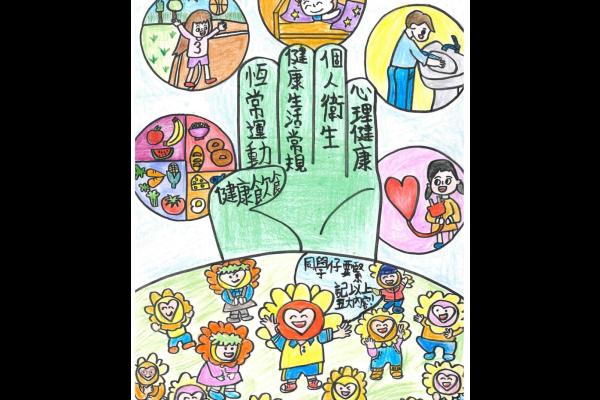 恆常運動
健康生活常規
個人衛生
心理健康
健康飲食
3
同學仔要緊
記以上
五大內